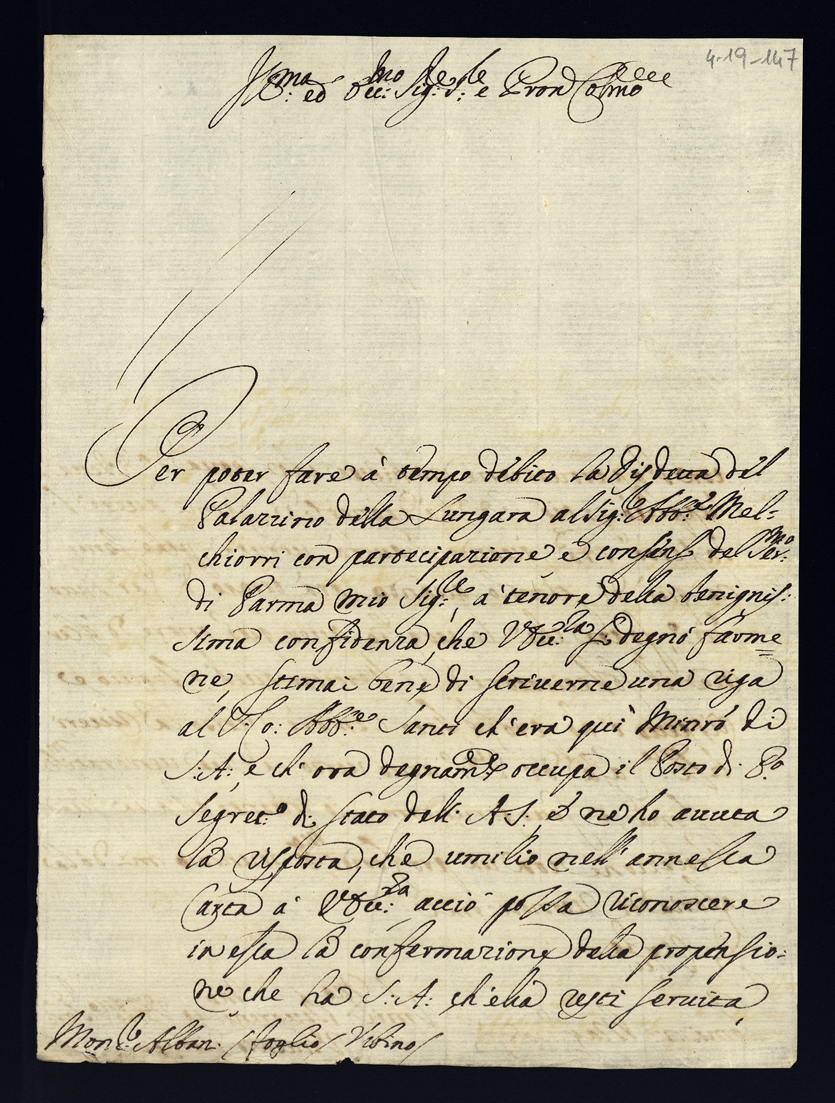 4-19-147
Ill:ma ed Ecc:mo Sig:re S:re e Pron Colmo
Per poter fare à tempo debito la disdetta del
Palazzino della Lungara al Sig:r Abb:e Mel-
chiorri con partecipazione e consenso del Ser:mo
di Parma mio Sig:re, a tenore della benignis:
sima confidenza, che V Ecc:za si degnò farme
ne, stimai bene di scriverne una riga
al S:r Co: Abb:e Santi ch'era quì Minrõ di
S:A:, e ch'ora degnam:te occupa il Posto di P:o
Segret:o di Stato dell: A:S: e ne ho avuta
la risposta, che umilio nell'annessa
Carta à V Ecc:za acciò possa riconoscere
in essa la confermazione della propensio:
ne, che ha S:A: ch'ella resti servita,
Mon:r Alban: /foglio Urbino/